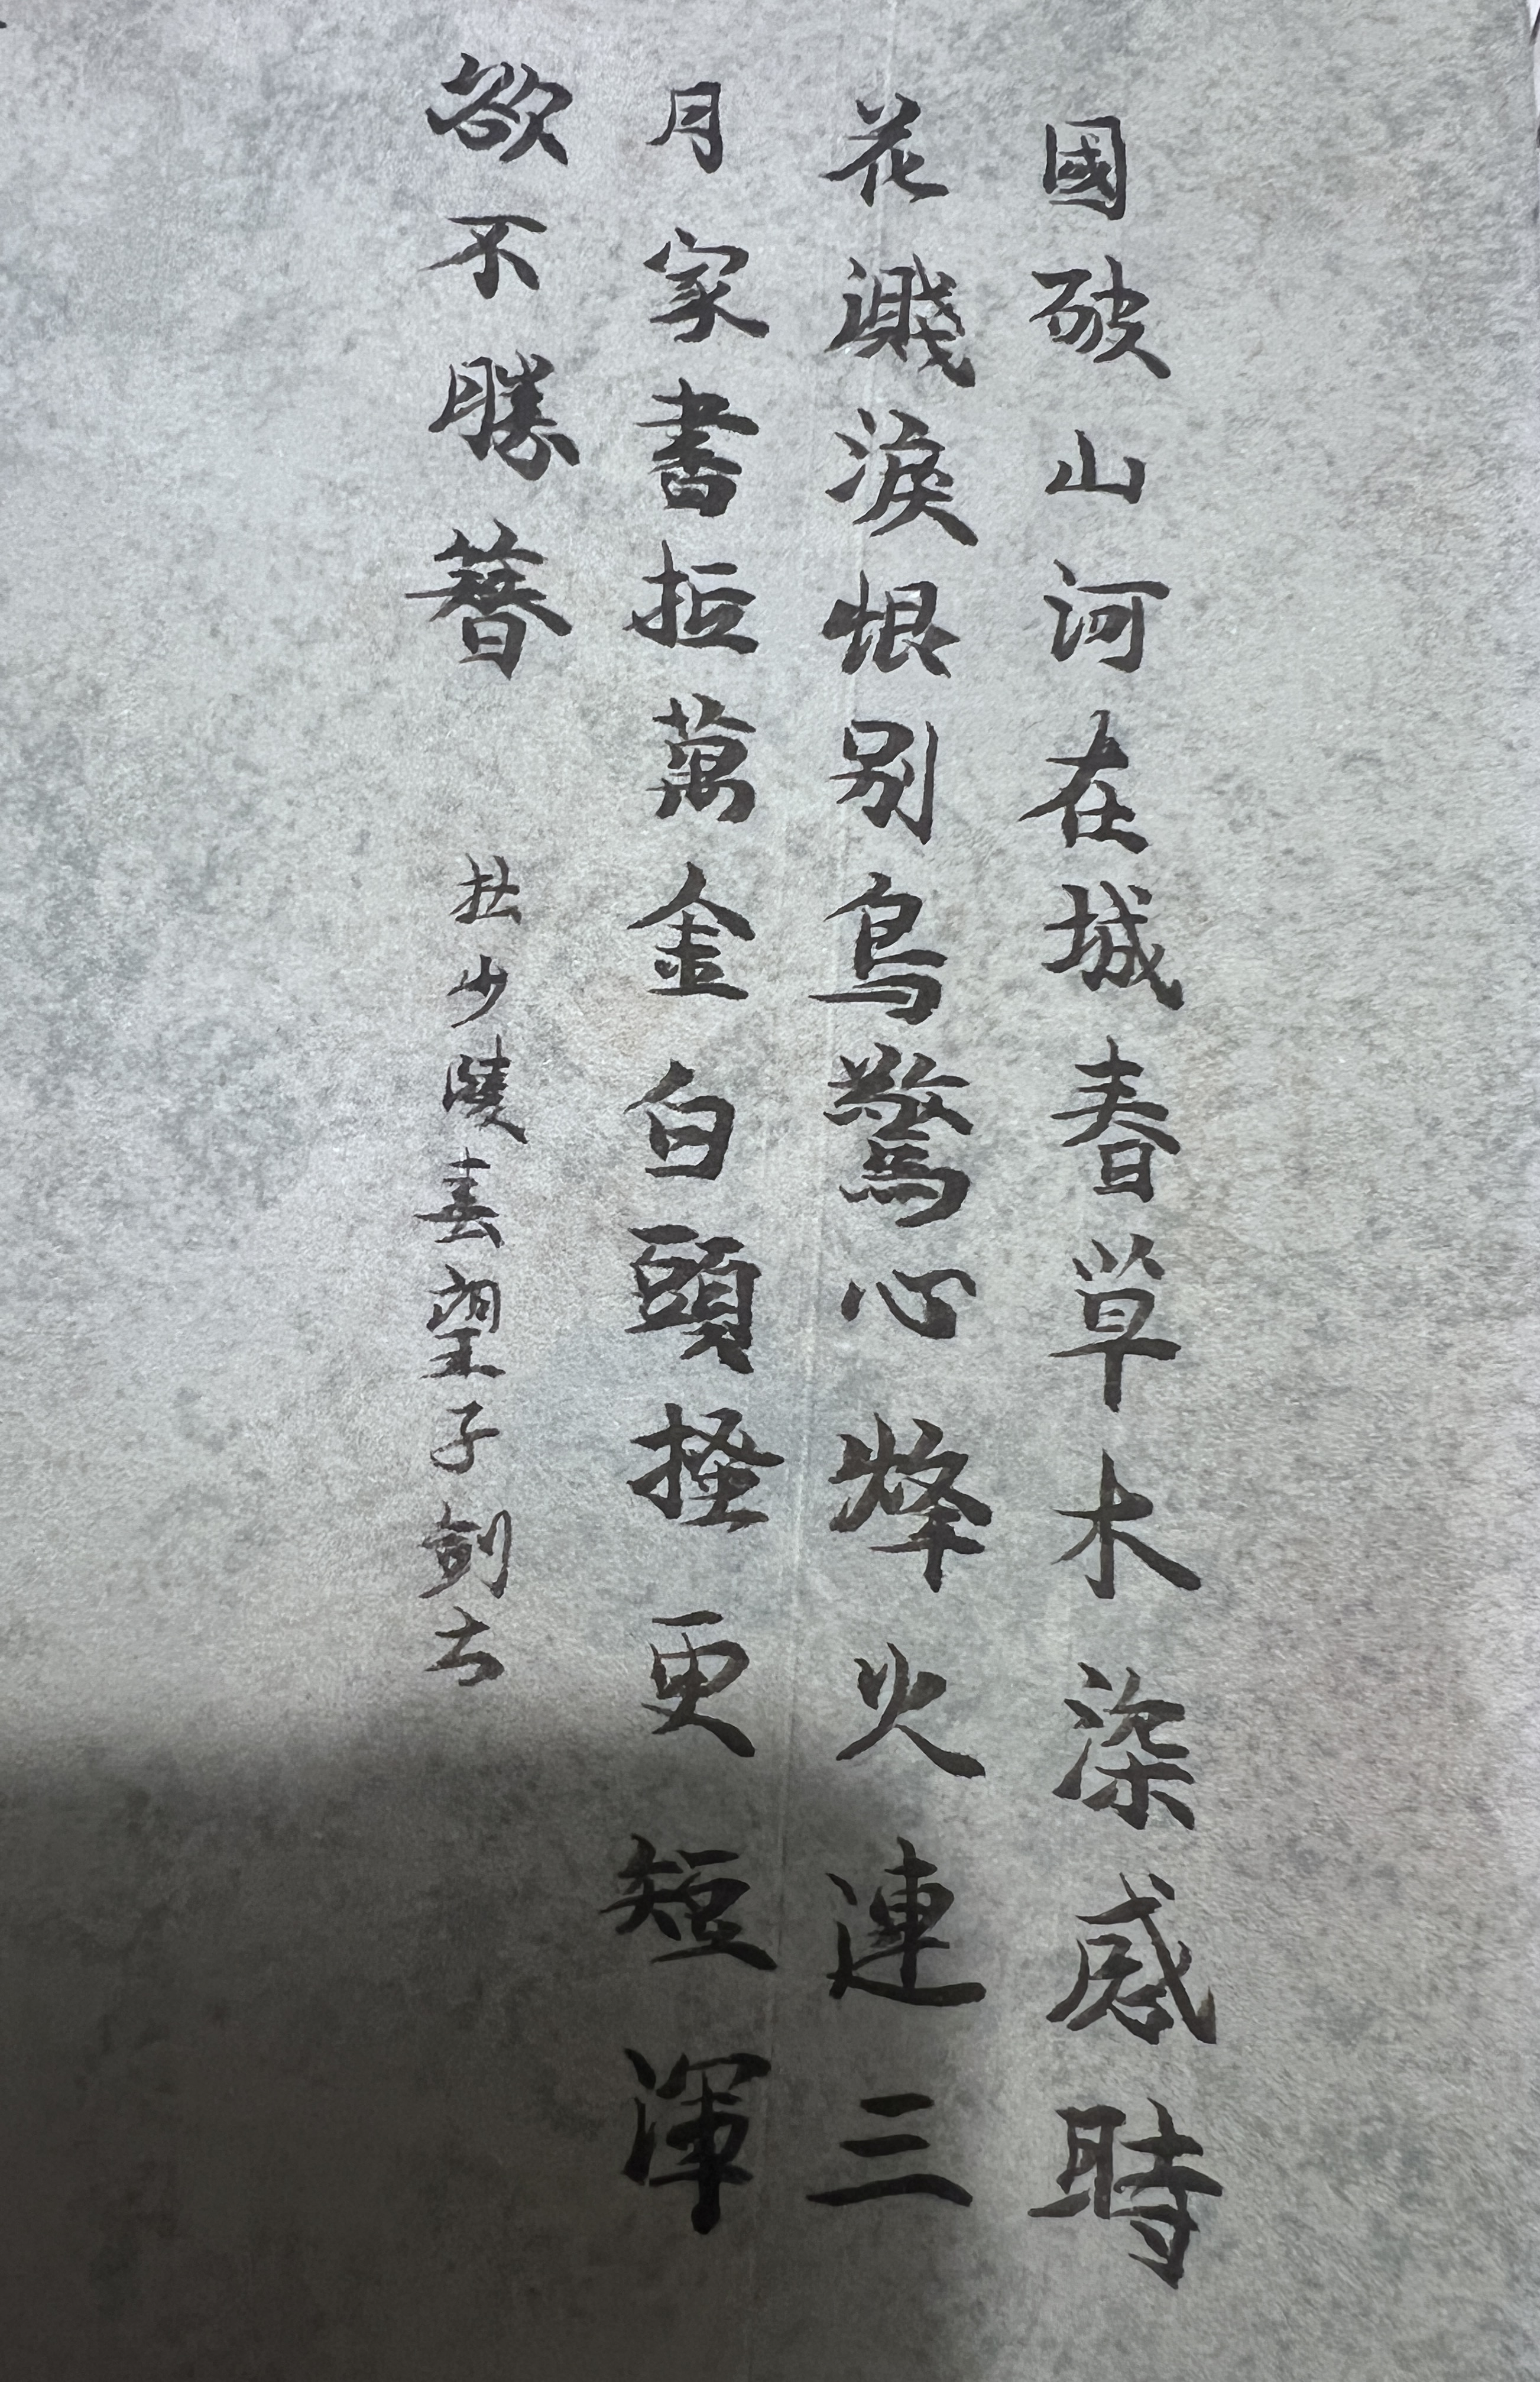 國破山河在城春草木深感時
花濺淚恨别鳥驚心烽火連三
月家書抵萬金白頭搔更短渾
欲不勝簪 杜少陵春望子劍